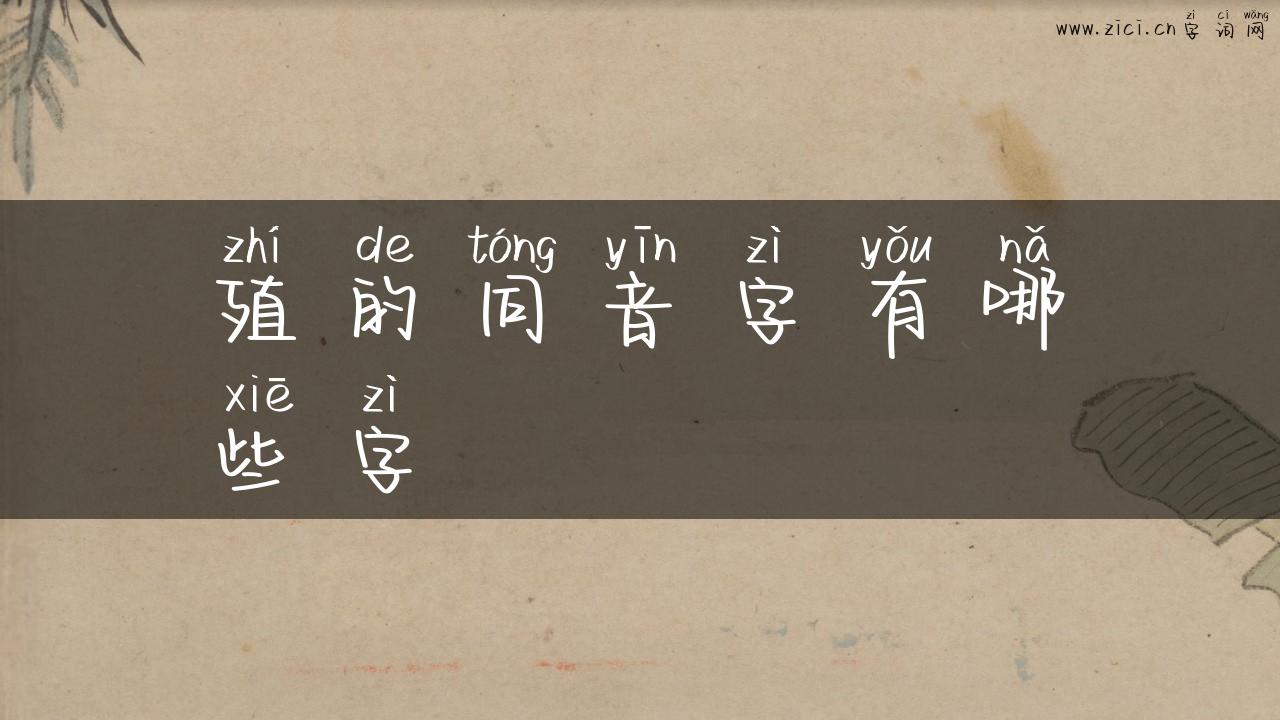 zì cí wǎng
www.zici.cn 字 词 网
zhí de tóng yīn zì yǒu nǎ
殖 的 同 音 字 有 哪
xiē zì
些 字